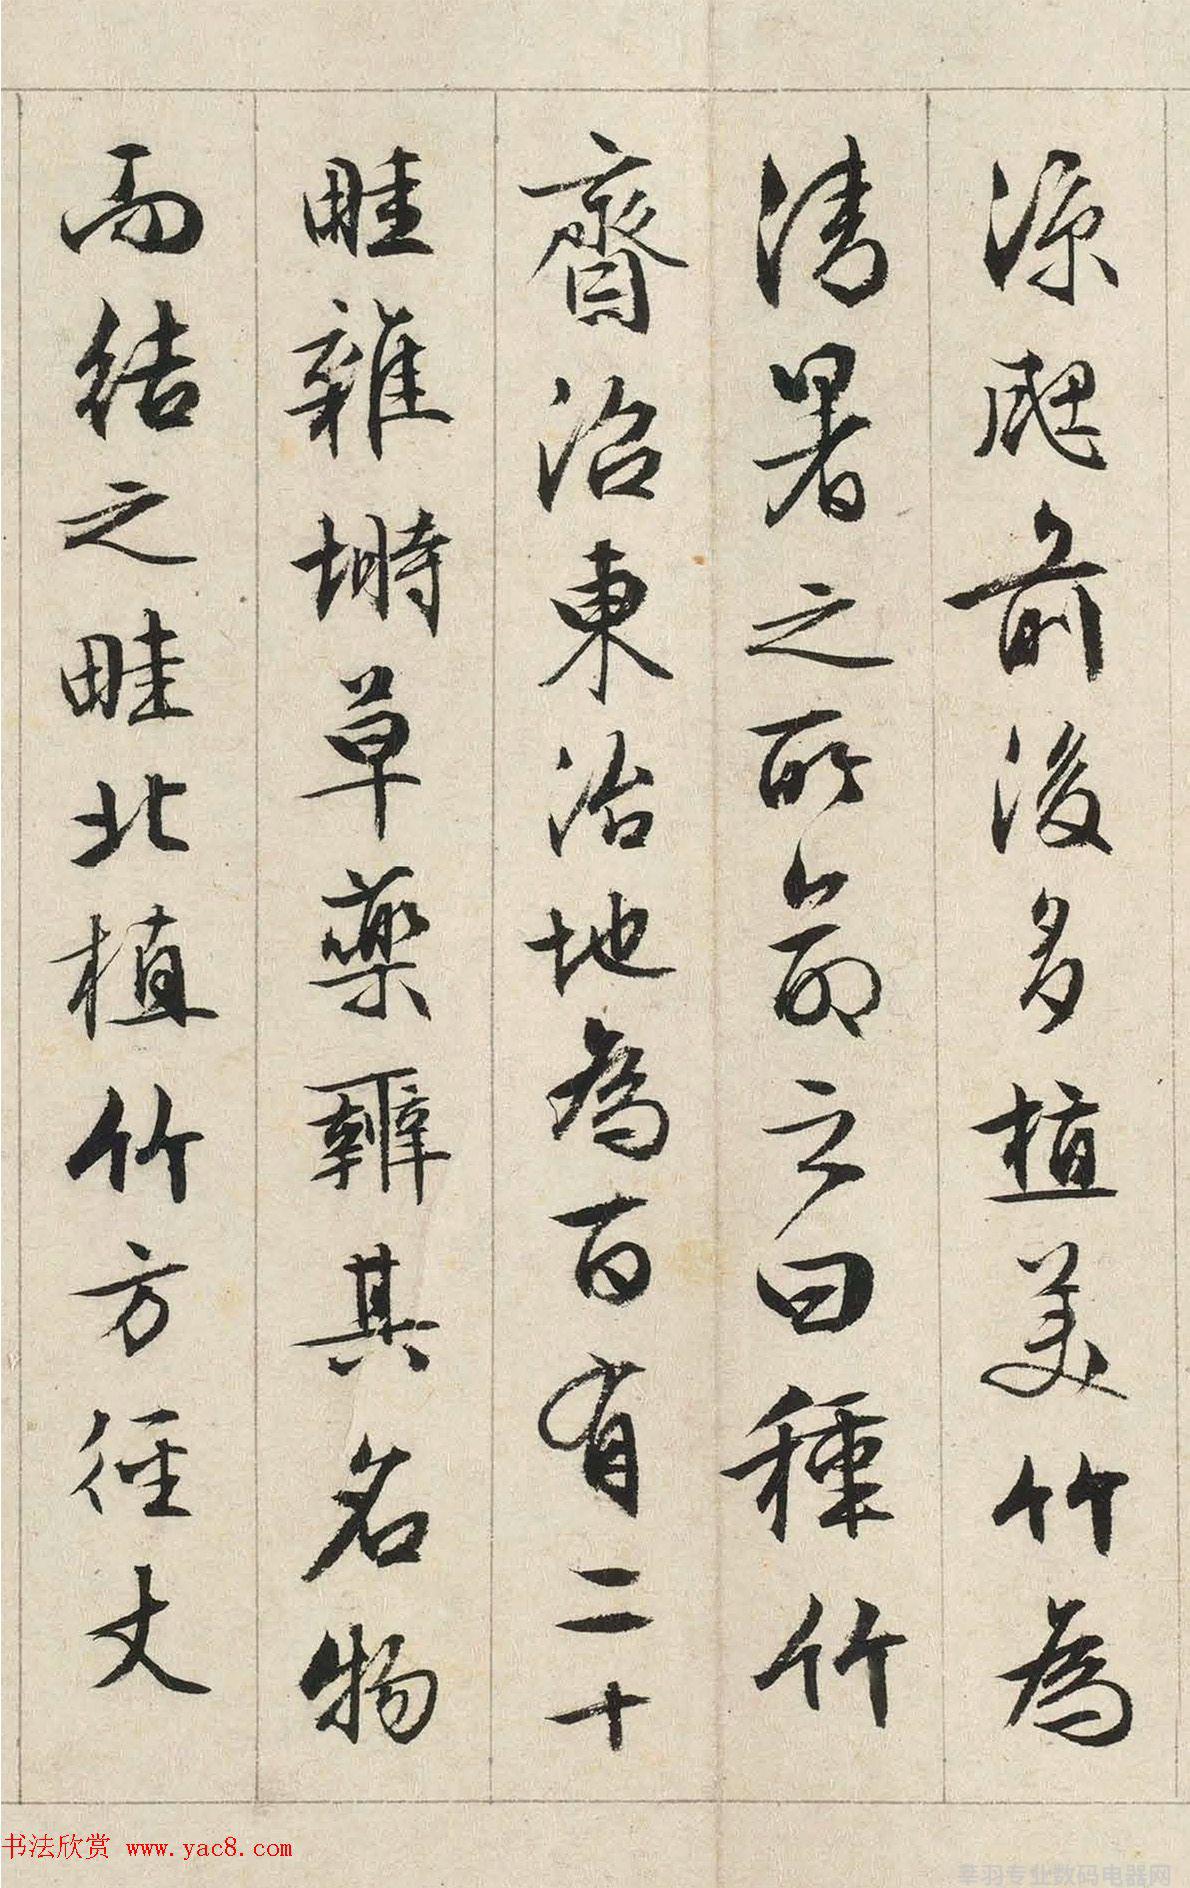 涼颸前後多植美竹為
清暑之所命之曰種竹
齋沼東治地為百有二十
畦雜塒草藥辨其名物
而結之畦北植竹方徑丈
书法欣赏 www.yac8.com
莘羽专业数码电器网